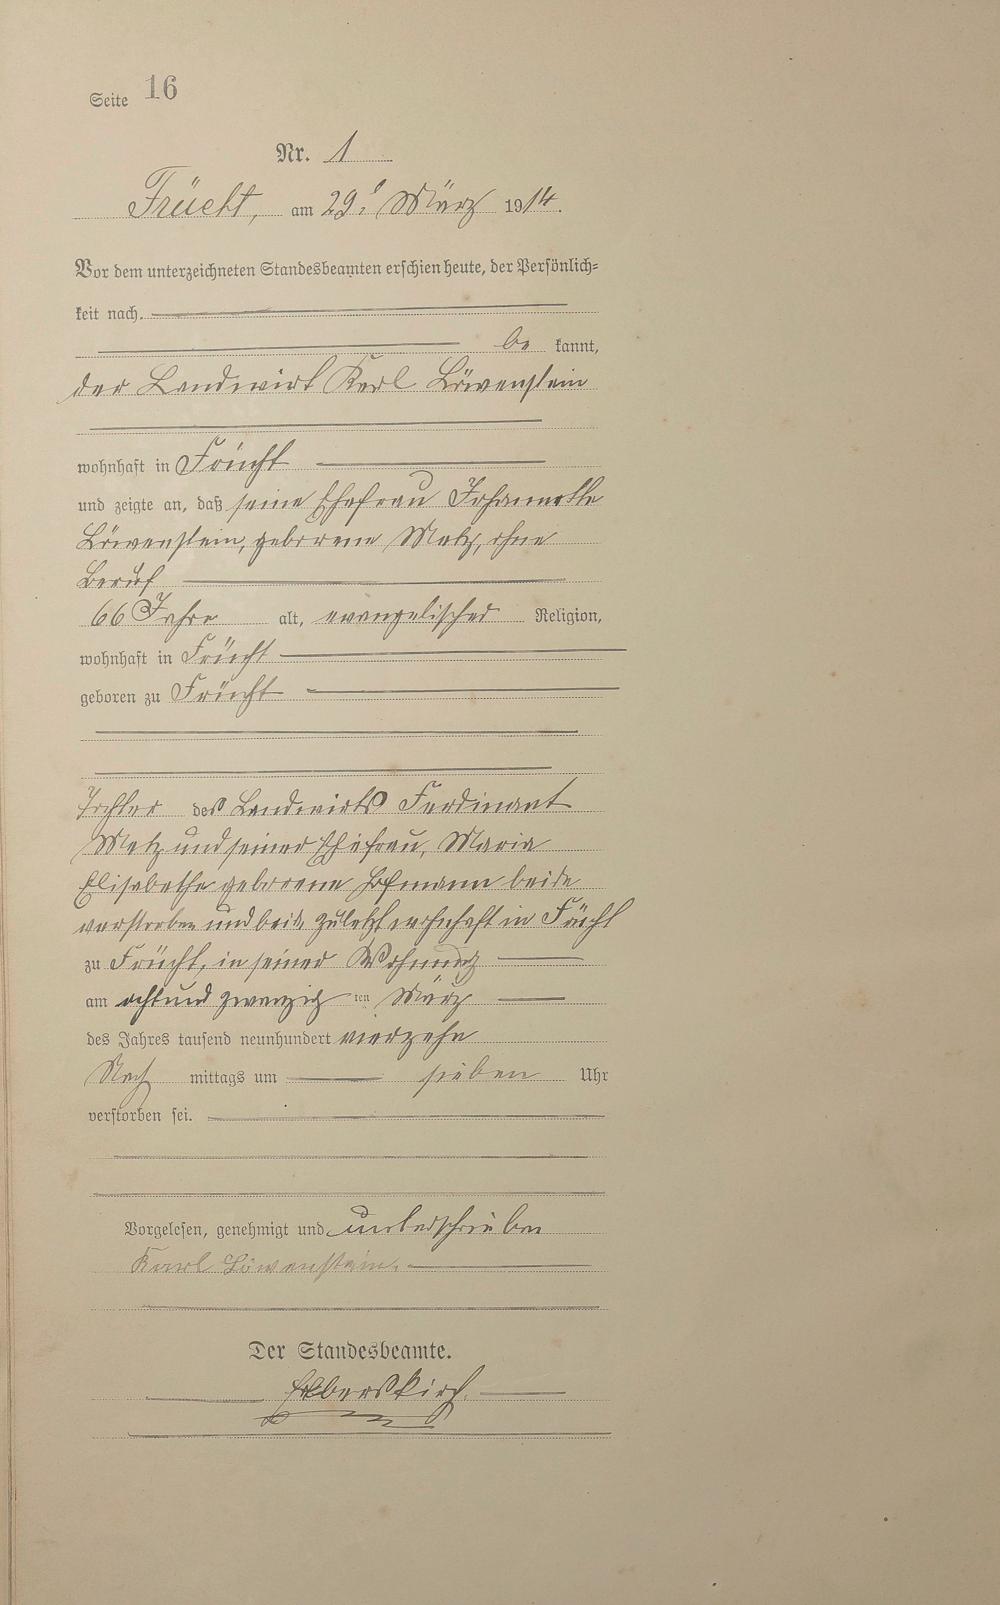 Seite 16
Nr. 1
Frücht, am 29. März 1914.
Vor dem unterzeichneten Standesbeamten erschien heute, der Persönlich=
keit nach
be kannt,
der Landwirt Karl Löwenstein
wohnhaft in Frücht
und zeigte an, daß seine Ehefrau Johannette
Löwenstein, geborene Metz, ohne
Beruf
66 Jahre alt, evangelischer Religion,
wohnhaft in Frücht
geboren zu Frücht
Tochter des Landwirts Ferdinant
Metz und seiner Ehefrau, Maria
Elisabethe geborene Hofmann beide
verstorben und beide zuletzt wohnhaft in Frücht
zu Frücht, in seiner Wohnung
am acht und zwanzig ten März
des Jahres tausend neunhundert vierzehn
Nach mittags um sieben Uhr
verstorben sei.
Vorgelesen, genehmigt und unterschrieben
Karl Löwenstein.
Der Standesbeamte.